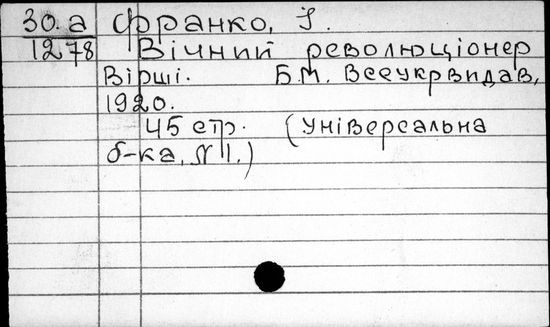 30.а Франко, І.
1278 Вічний революціонер
Вірші. Б.М. Всеукрвидав,
1920.
45 стр. (Універсальна
б-ка, N 1.)